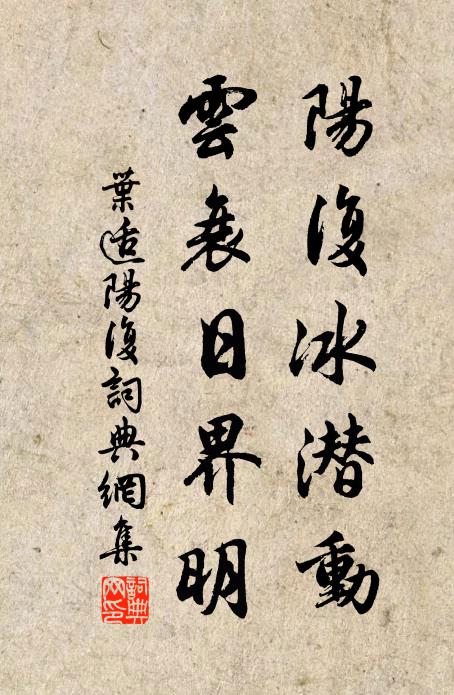 陽復冰潛動
雲衰日界明
葉适陽復詞典網集
詞典網印